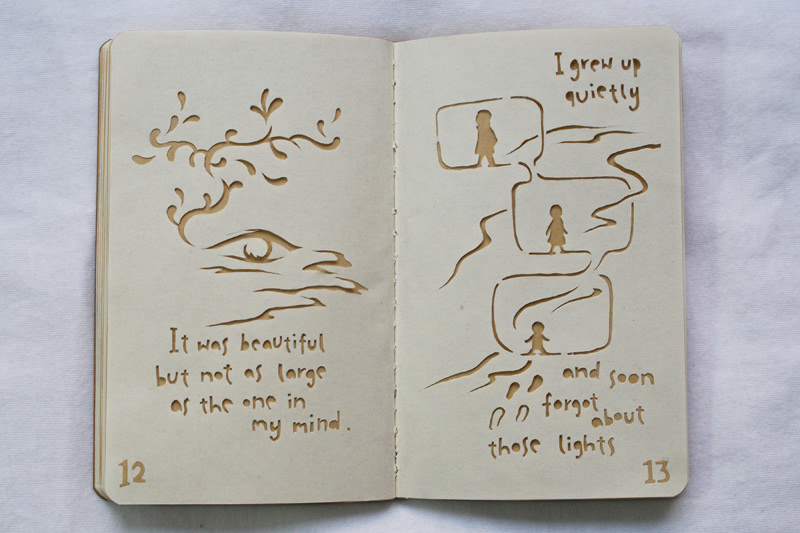 It was beautiful
but not as large
as the one in
my mind.
12
I grew up
quietly
and soon
forgot
about
those lights
13